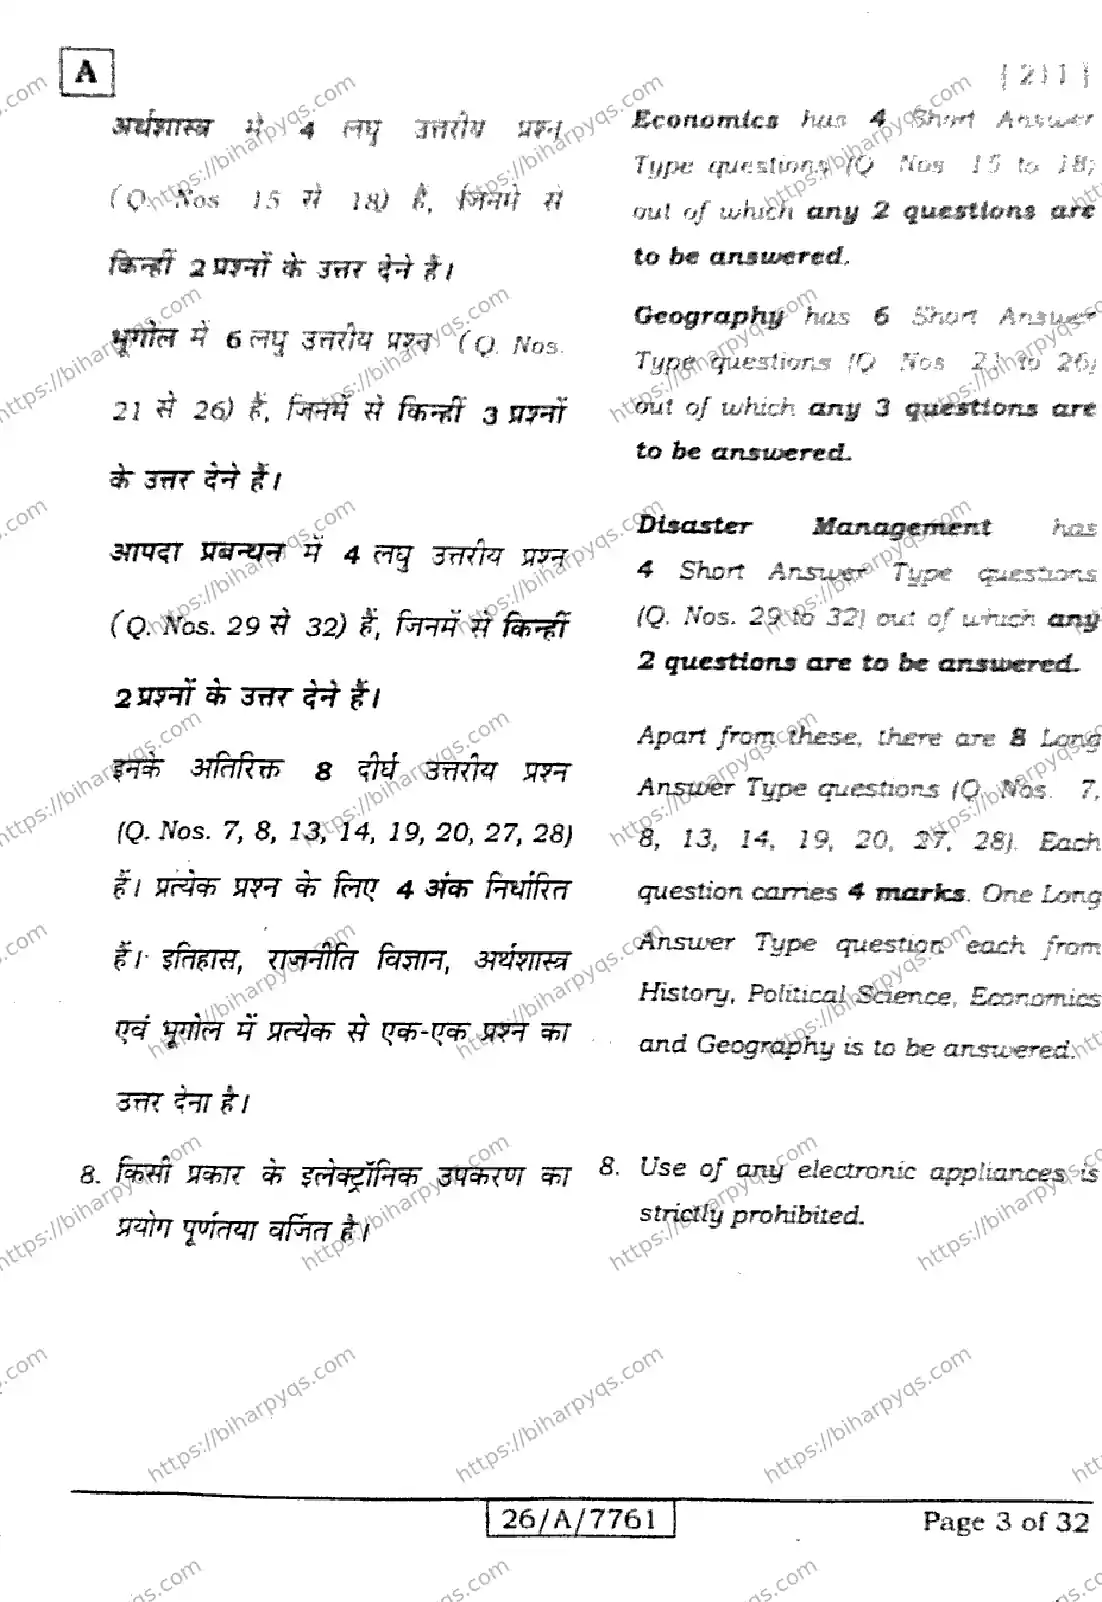 A
[ 211 ]
अर्थशास्त्र में 4 लघु उत्तरीय प्रश्न
(Q. Nos 15 से 18) हैं, जिनमें से
किन्हीं 2 प्रश्नों के उत्तर देने हैं।
भूगोल में 6 लघु उत्तरीय प्रश्न (Q. Nos.
21 से 26) हैं, जिनमें से किन्हीं 3 प्रश्नों
के उत्तर देने हैं।
आपदा प्रबन्धन में 4 लघु उत्तरीय प्रश्न
(Q. Nos. 29 से 32) हैं, जिनमें से किन्हीं
2 प्रश्नों के उत्तर देने हैं।
इनके अतिरिक्त 8 दीर्घ उत्तरीय प्रश्न
(Q. Nos. 7, 8, 13, 14, 19, 20, 27, 28)
हैं। प्रत्येक प्रश्न के लिए 4 अंक निर्धारित
हैं। इतिहास, राजनीति विज्ञान, अर्थशास्त्र
एवं भूगोल में प्रत्येक से एक-एक प्रश्न का
उत्तर देना है।
8. किसी प्रकार के इलेक्ट्रॉनिक उपकरण का
प्रयोग पूर्णतया वर्जित है।
Economics has 4 Short Answer
Type questions (Q Nos 15 to 18)
out of which any 2 questions are
to be answered.
Geography has 6 Short Answer
Type questions (Q Nos 21 to 26)
out of which any 3 questions are
to be answered.
Disaster Management has
4 Short Answer Type questions
(Q. Nos. 29 to 32) out of which any
2 questions are to be answered.
Apart from these, there are 8 Long
Answer Type questions (Q. Nos. 7,
8, 13, 14, 19, 20, 27, 28). Each
question carries 4 marks. One Long
Answer Type question each from
History, Political Science, Economics
and Geography is to be answered.
8. Use of any electronic appliances is
strictly prohibited.
26/A/7761
Page 3 of 32
https://biharpyqs.com